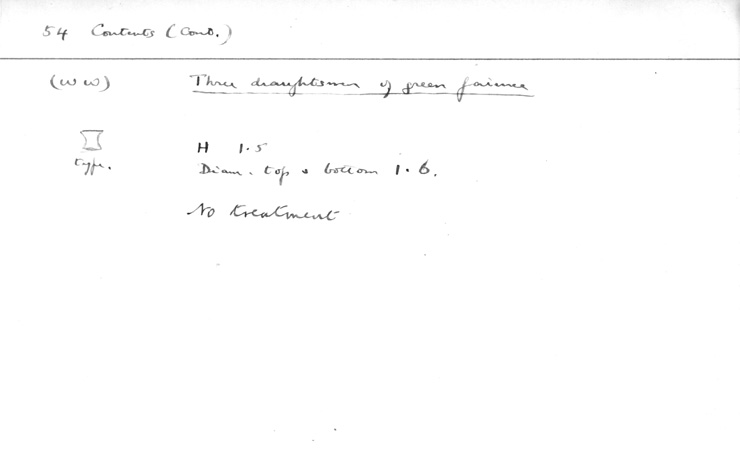 54 Contents (Cont.)
(WW) Three draughtsmen of green faience
type.
H 1.5
Diam. top & bottom 1.6.
No treatment